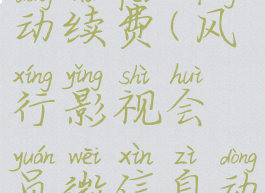 动续费(风
xíng yǐng shì huì
行影视会
yuán wēi xìn zì dòng
员微信自动